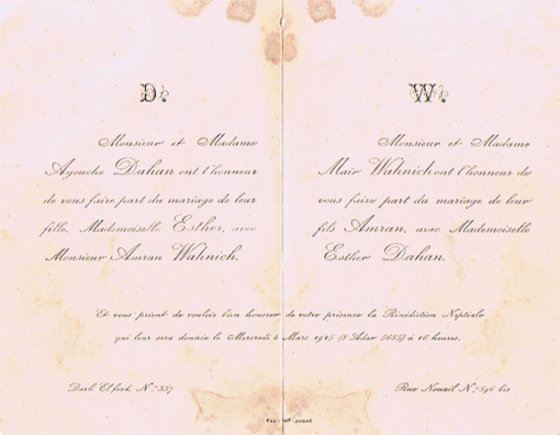 D.
Monsieur et Madame
Ayouche Dahan ont l'honneur
de vous faire part du mariage de leur
fille, Mademoiselle Esther, avec
Monsieur Amran Wahnich.
W.
Monsieur et Madame
Maïr Wahnich ont l'honneur de
vous faire part du mariage de leur
fils Amran, avec Mademoiselle
Esther Dahan.
Et vous prient de vouloir bien honorer de votre présence la Bénédiction Nuptiale
qui leur sera donnée le Mercredi 4 Mars 1925 (8 Adar 5685) à 16 heures.
Derb El ferd, N.º 337
Rue Nouail N.º 596 bis
FEZ - IMP. ANDRÉ